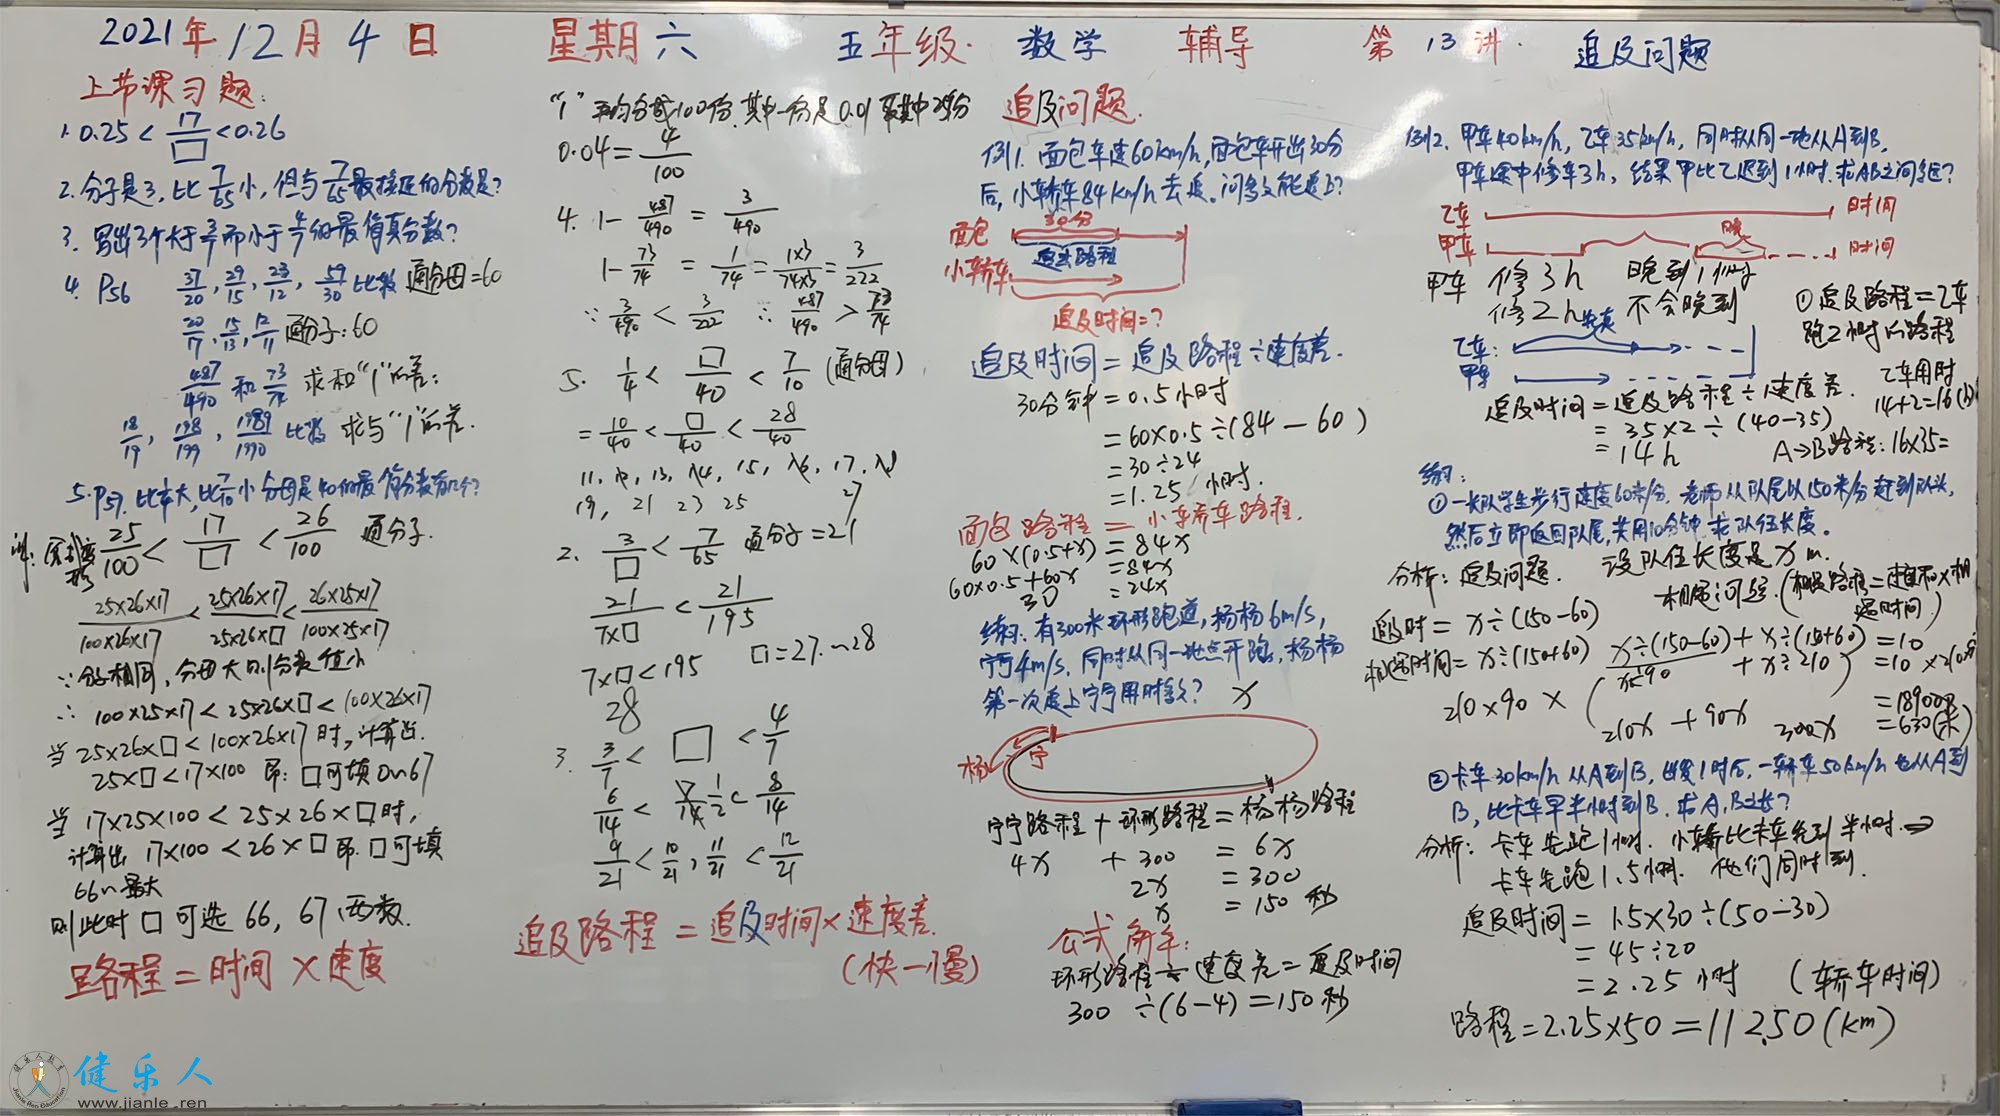 2021年12月4日 星期六 五年级 数学 辅导 第13讲 追及问题
上节课习题:
1. 0.25 < 17/□ < 0.26
2. 分子是3, 比 7/65 小, 但与 7/65 最接近的分数是?
4. P56 37/20, 29/15, 23/12, 59/30 比较 通分母=60
20/17, 15/13, 12/11 通分子: 60
487/490 和 73/74 求和“1”的差:
18/19, 198/199, 1989/1990 比较 求与“1”的差.
25/100 < 17/□ < 26/100 通分子.
25×26×17/100×26×17 < 25×26×17/25×26×□ < 26×25×17/100×25×17
∵ 分子相同, 分母大则分数值小
∴ 100×25×17 < 25×26×□ < 100×26×17
当 25×26×□ < 100×26×17 时, 计算出.
25×□ < 17×100 即: □可填0~67
当 17×25×100 < 25×26×□ 时,
计算出 17×100 < 26×□ 即 □可填
66~最大
则此时 □ 可选 66, 67 两数.
路程 = 时间 × 速度
“1” 平均分成100份, 其中一份是0.01
0.04 = 4/100
4. 1 - 487/490 = 3/490
1 - 73/74 = 1/74 = 1×3/74×3 = 3/222
∵ 3/490 < 3/222 ∴ 487/490 > 73/74
5. 1/4 < □/40 < 7/10 (通分母)
= 10/40 < □/40 < 28/40
11, 12, 13, 14, 15, 16, 17, 18
19, 21 23 25 27
2. 3/□ < 7/65 通分子=21
21/7×□ < 21/195
7×□ < 195 □=27.~28
28
3. 3/7 < □ < 4/7
6/14 < 7/14 1/2 < 8/14
9/21 < 10/21, 11/21 < 12/21
追及路程 = 追及时间 × 速度差.
(快-慢)
追及问题.
例1. 面包车速60km/h, 面包车开出30分
后, 小轿车84km/h去追。问多久能追上?
面包 30分
追及路程
小轿车
追及时间=?
追及时间 = 追及路程÷速度差.
30分钟 = 0.5小时
= 60×0.5÷(84-60)
= 30÷24
= 1.25 小时.
面包路程 = 小轿车路程.
60×(0.5+x) = 84x
60×0.5+60x = 84x
30 = 24x
练习: 有300米环形跑道, 杨杨6m/s,
宁宁4m/s, 同时从同一地点开跑, 杨杨
第一次追上宁宁用时多久? x
杨 宁
宁宁路程 + 环形路程 = 杨杨路程
4x + 300 = 6x
2x = 300
x = 150 秒
公式解:
环形路程 ÷ 速度差 = 追及时间
300 ÷(6-4) = 150秒
例2. 甲车40km/h, 乙车35km/h, 同时从同一地从A到B,
甲车途中修车3h, 结果甲比乙迟到1小时. 求AB之间距?
乙车 时间
甲车 晚 时间
甲车 修3h 晚到1小时
修2h 不会晚到
① 追及路程=乙车
跑2小时的路程
乙车:
甲车
追及时间 = 追及路程÷速度差.
= 35×2÷(40-35)
= 14h
乙车用时
14+2=16(h)
A→B路程: 16×35=
练习:
① 一长队学生步行速度60米/分, 老师从队尾以150米/分赶到队头,
然后立即返回队尾, 共用10分钟. 求队伍长度。
分析: 追及问题. 设队伍长度是 x m.
追及时 = x÷(150-60)
相遇时间 = x÷(150+60)
x÷(150-60) + x÷(150+60) = 10
210×90×( x÷90 + x÷210 ) = 10×210×90
210x + 90x = 189000
300x = 630(米)
② 卡车30km/h从A到B, 出发1时后, 一轿车50km/h也从A到
B, 比卡车早半小时到B. 求A,B之长?
分析: 卡车先跑1小时. 小轿比卡车先到半小时. ⇒
卡车先跑1.5小时. 他们同时到.
追及时间 = 1.5×30÷(50-30)
= 45÷20
= 2.25 小时 (轿车时间)
路程 = 2.25×50 = 112.50(km)
健乐人
www.jianle.ren